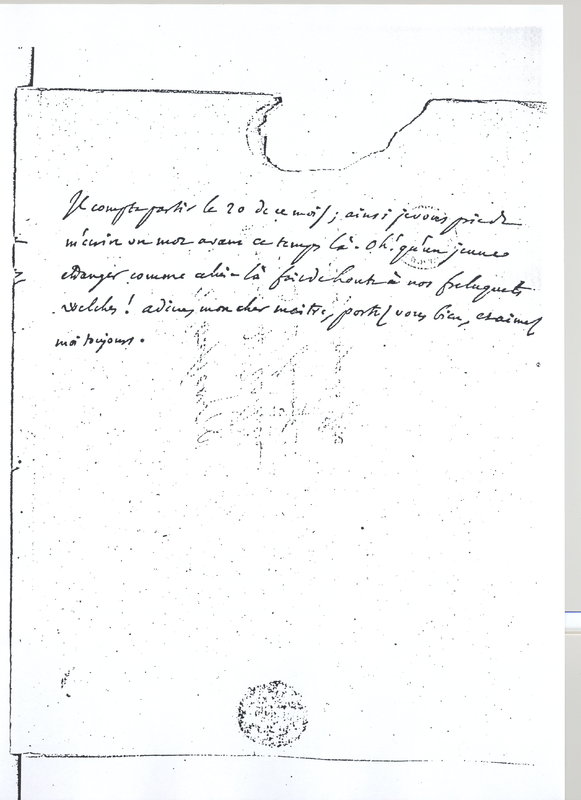 Je compte partir le 20 de ce mois ; ainsi je vous prie de
m'ecrire un mot avant ce temps là. Oh! qu'un jeune
etranger comme celui-là fait de honte à nos freluquets
welches! adieu mon cher maitre, portez vous bien, et aimez
moi toujours.